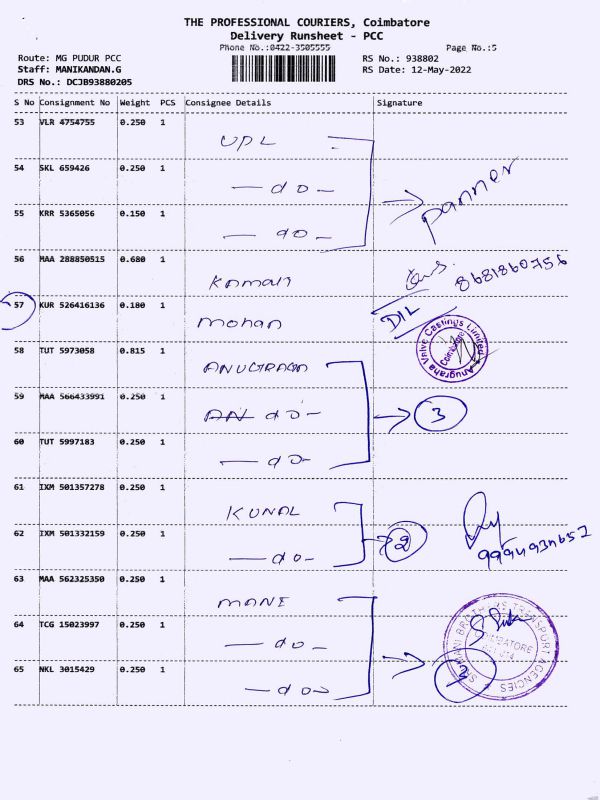 THE PROFESSIONAL COURIERS, Coimbatore
Delivery Runsheet - PCC
Phone No.:0422-3505555
Page No.:5
Route: MG PUDUR PCC
RS No.: 938802
Staff: MANIKANDAN.G
RS Date: 12-May-2022
DRS No.: DCJB93880205
S No Consignment No Weight PCS Consignee Details Signature
53 VLR 4754755 0.250 1 UPL
54 SKL 659426 0.250 1 — do — panner
55 KRR 5365056 0.150 1 — do —
56 MAA 288850515 0.680 1 Kamali 8681860756
57 KUR 526416136 0.180 1 mohan DIL
58 TUT 5973058 0.815 1 ANUGRAGA Anugraha Valve Castings Limited Coimbatore
59 MAA 566433991 0.250 1 AN do — 3
60 TUT 5997183 0.250 1 — do —
61 IXM 501357278 0.250 1 KUNAL
62 IXM 501332159 0.250 1 — do — 2
63 MAA 562325350 0.250 1 MANI
64 TCG 15023997 0.250 1 — do — TRANSPORT AGENCIES COIMBATORE
65 NKL 3015429 0.250 1 — do —